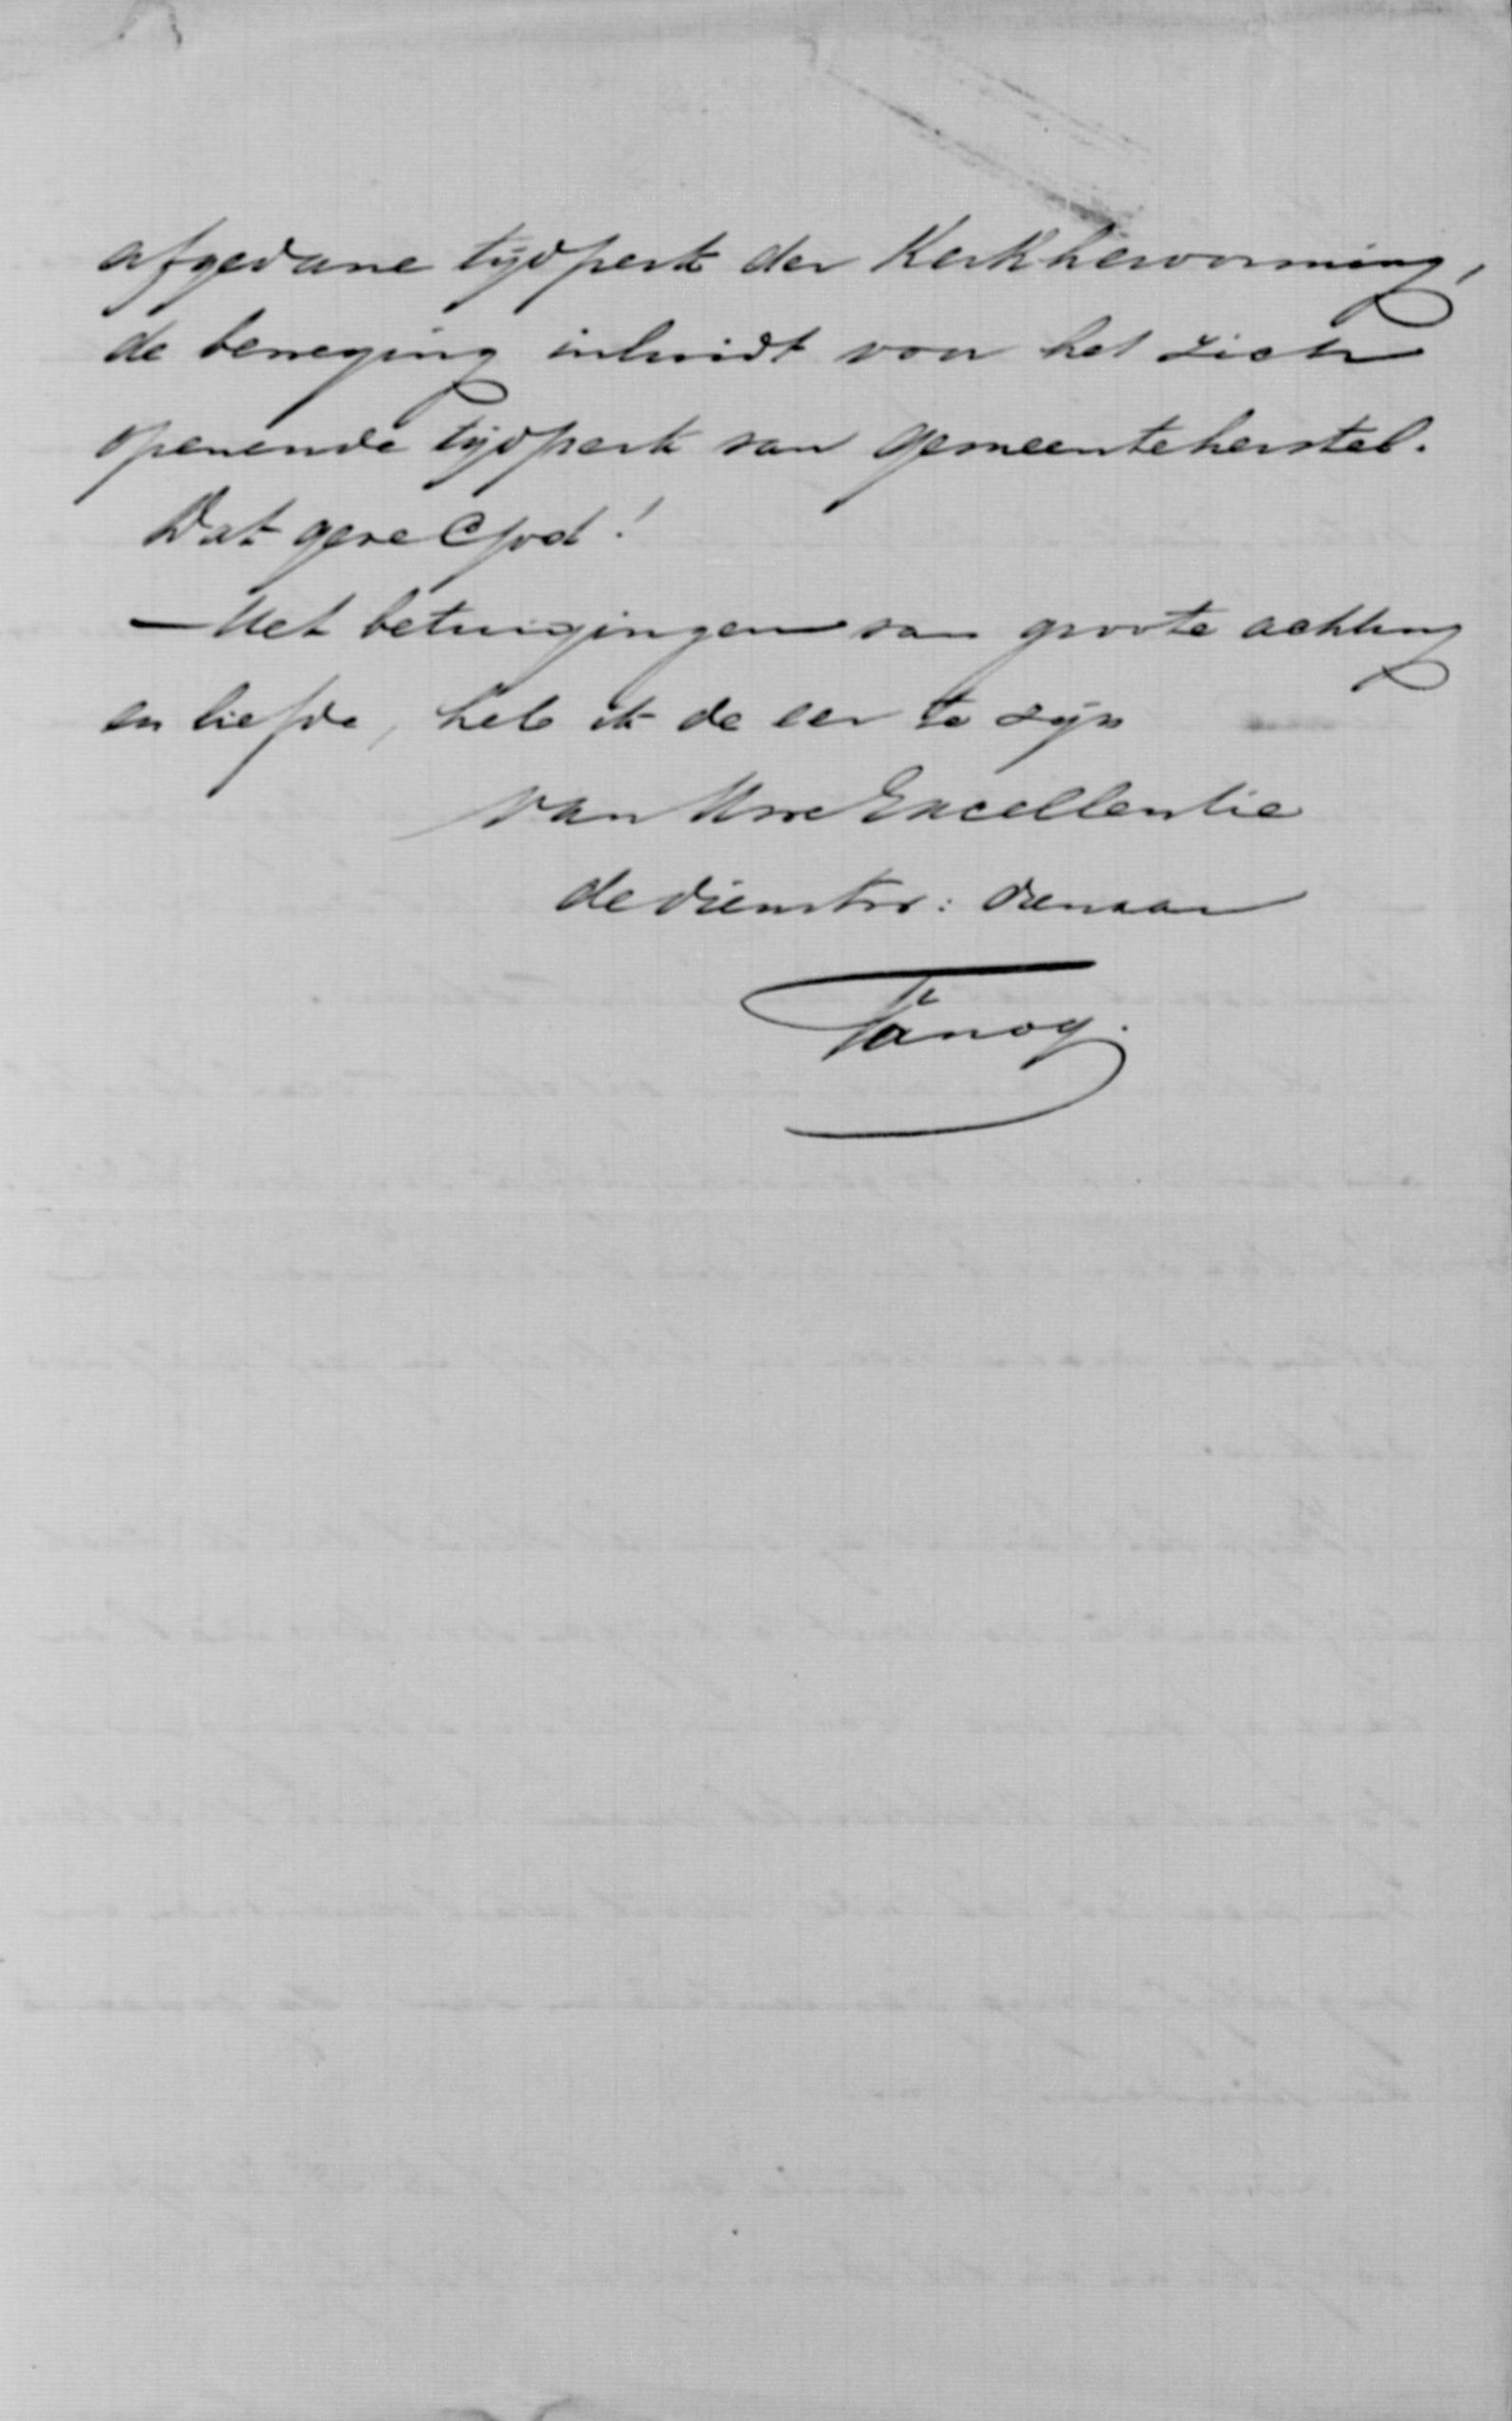 afgedane tijdperk der Kerkhervorming,
de beweging inluidt voor het zich
openende tijdperk van gemeenteherstel.
Dat geve God!
— Met betuigingen van groote achting
en liefde, heb ik de eer te zijn
van Uwe Excellentie
de dienstw: dienaar